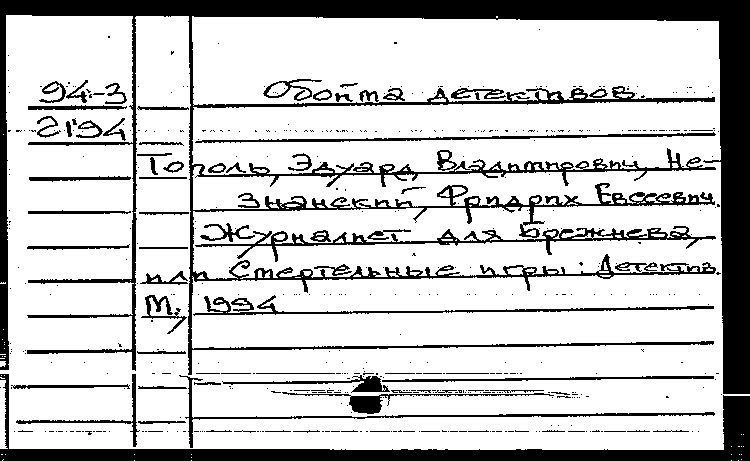 94-3 Обойма детективов.
2194
Тополь, Эдуард Владимирович, Не-
знанский, Фридрих Евсеевич.
Журналист для Брежнева,
или Смертельные игры: Детектив.
М., 1994